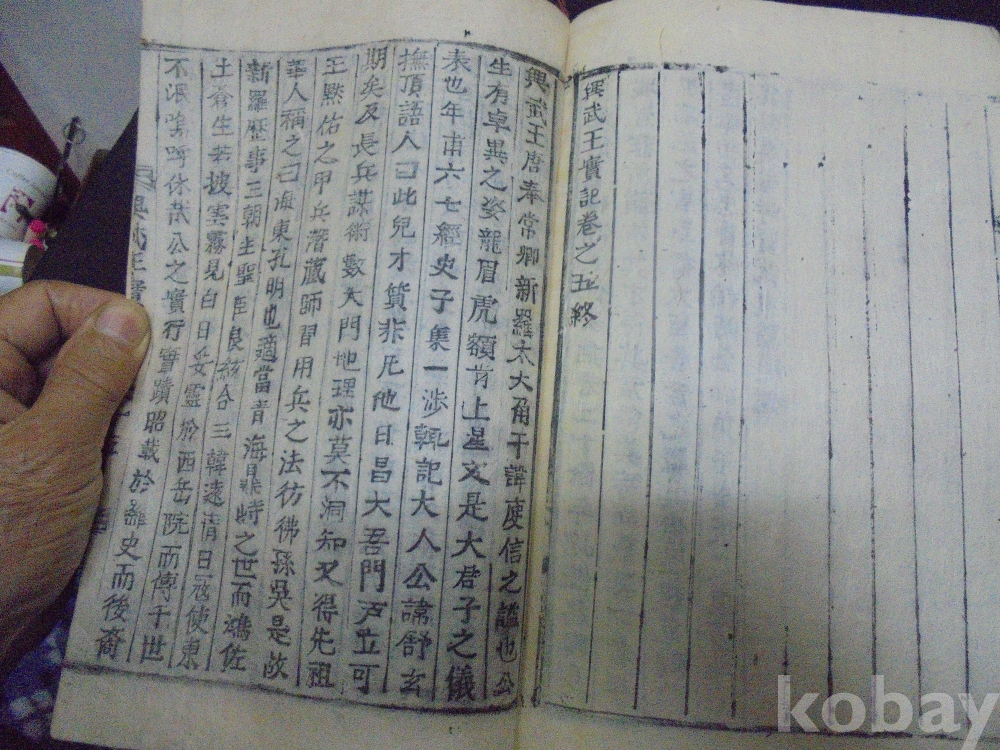 興武王實記卷之五終
興武王唐奉常卿新羅太大角干諱庾信之謚也公
生有卓異之姿龍眉虎額背上星文是大君子之儀
表也年甫六七經史子集一涉輒記大人公諱舒玄
撫頂語人曰此兒才質非凡他日昌大吾門戶立可
期矣及長兵謀術數天門地理亦莫不洞知又得先祖
王黙佑之甲兵潛藏師習用兵之法彷彿孫吳是故
華人稱之曰海東孔明也適當青海鼎峙之世而鴻佐
新羅歷事三朝主聖臣良
土蒼生若披雲霧見白日妥靈於西岳院而傳于世
不泯嗚呼休哉公之實行實蹟昭載於羅史而後裔
kobay